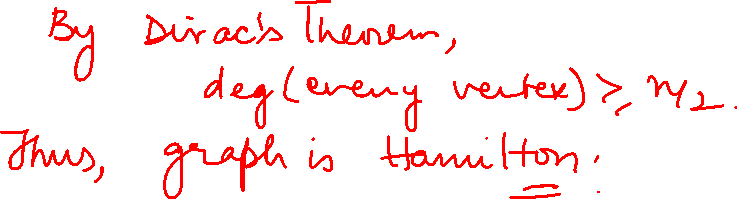 By Dirac's Theorem,
deg(every vertex) ≥ n/2.
Thus, graph is Hamilton.